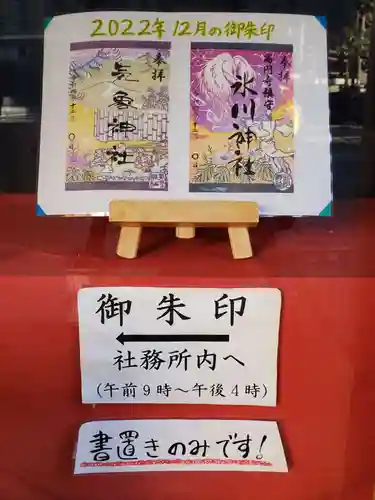 2022年12月の御朱印
奉拝
気象神社
奉拝
高円寺鎮守
氷川神社
御朱印
社務所内へ
(午前9時〜午後4時)
書置きのみです!